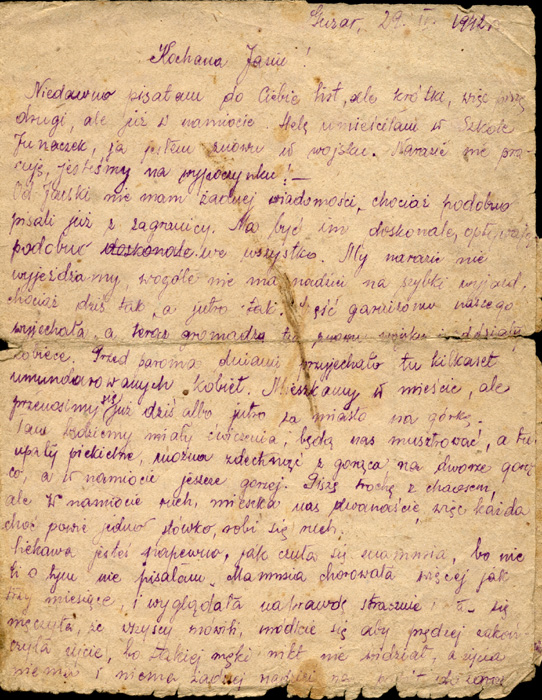 Guzar, 29. 1942r.
Kochana Janiu!
Niedawno pisałam do Ciebie list, ale krótki, więc piszę
drugi, ale już w namiocie. Helę umieściłam w Szkole
Junaczek, ja jestem znowu w wojsku. Narazie nie pra-
cuję, jesteśmy na wypoczynku! —
Od Jaśki nie mam żadnej wiadomości, chociaż podobno
pisali już z zagranicy. Ma być im doskonale,
podobno doskonale we wszystko. My narazie nie
wyjeżdżamy, wogóle nie ma nadziei na szybki wyjazd,
chociaż dziś tak, a jutro tak. Część garnizonu naszego
wyjechała, a teraz gromadzą tu wojsko i oddziały
kobiece. Przed paroma dniami przyjechało tu kilkaset
umundurowanych kobiet. Mieszkamy w mieście, ale
przenosimy się już dziś albo jutro za miasto na górkę.
Tam będziemy miały ćwiczenia, będą nas musztrować, a tu
upały piekielne, można zdechnąć z gorąca, na dworze gorą-
co, a w namiocie jeszcze gorzej. Piszę trochę z chaosem,
ale w namiocie ruch, mieszka nas dwanaście, więc każda
choć powie jedno słówko, robi się ruch.
Ciekawa jesteś napewno, jak czuła się mamusia, bo nic
Ci o tym nie pisałam. Mamusia chorowała więcej jak
trzy miesiące, i wyglądała naprawdę strasznie, tak się
męczyła, że wszyscy mówili, módlcie się aby prędzej zakoń-
czyła życie, bo takiej męki nikt nie widział, a życia
niema i niema żadnej nadziei na